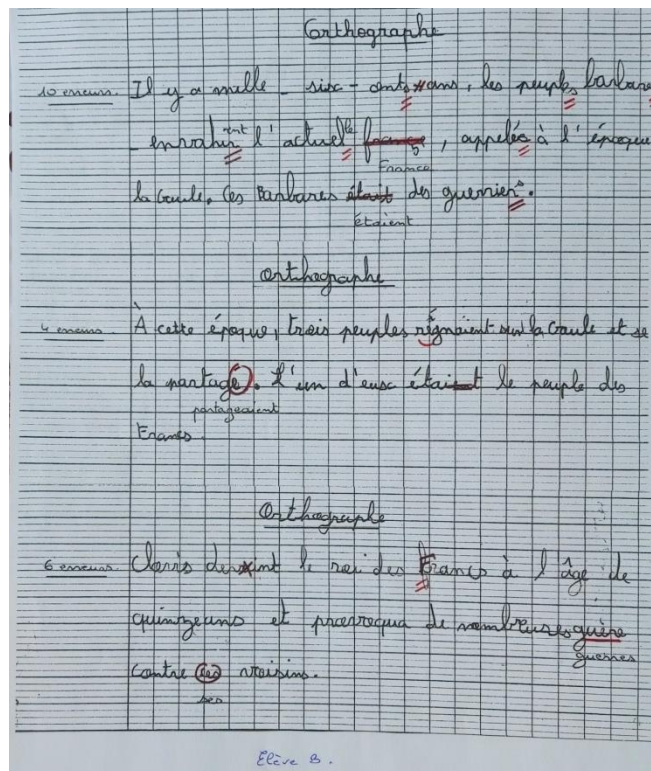 Orthographe
10 erreurs. Il y a mille - six - cents ans, les peuples barbares
- envahirent l'actuelle france, appelés à l'époque
France
la Gaule. Ces Barbares était des guerriers.
étaient
Orthographe
4 erreurs. À cette époque, trois peuples régnaient sur la Gaule et se
la partagé. L'un d'eux était le peuple des
partageaient
Francs.
Orthographe
6 erreurs. Clovis devint le roi des Francs à l'âge de
quinze ans et provoqua de nombreuses guère
guerres
contre des voisins.
ses
Elève B.